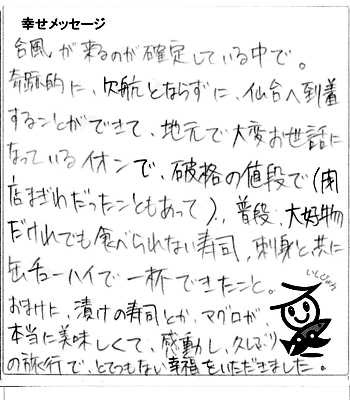 幸せメッセージ
台風が来るのが確定している中で。
奇跡的に、欠航とならずに、仙台へ到着
することができて、地元で大変お世話に
なっているイオンで、破格の値段で(閉
店まぎわだったこともあって)、普段、大好物
だけれでも食べられない寿司,刺身と共に
缶チューハイで一杯できたこと。
おまけに、漬けの寿司とか、マグロが、
本当に美味しくて、感動し、久しぶり
の旅行で、とてつもない幸福をいただきました。